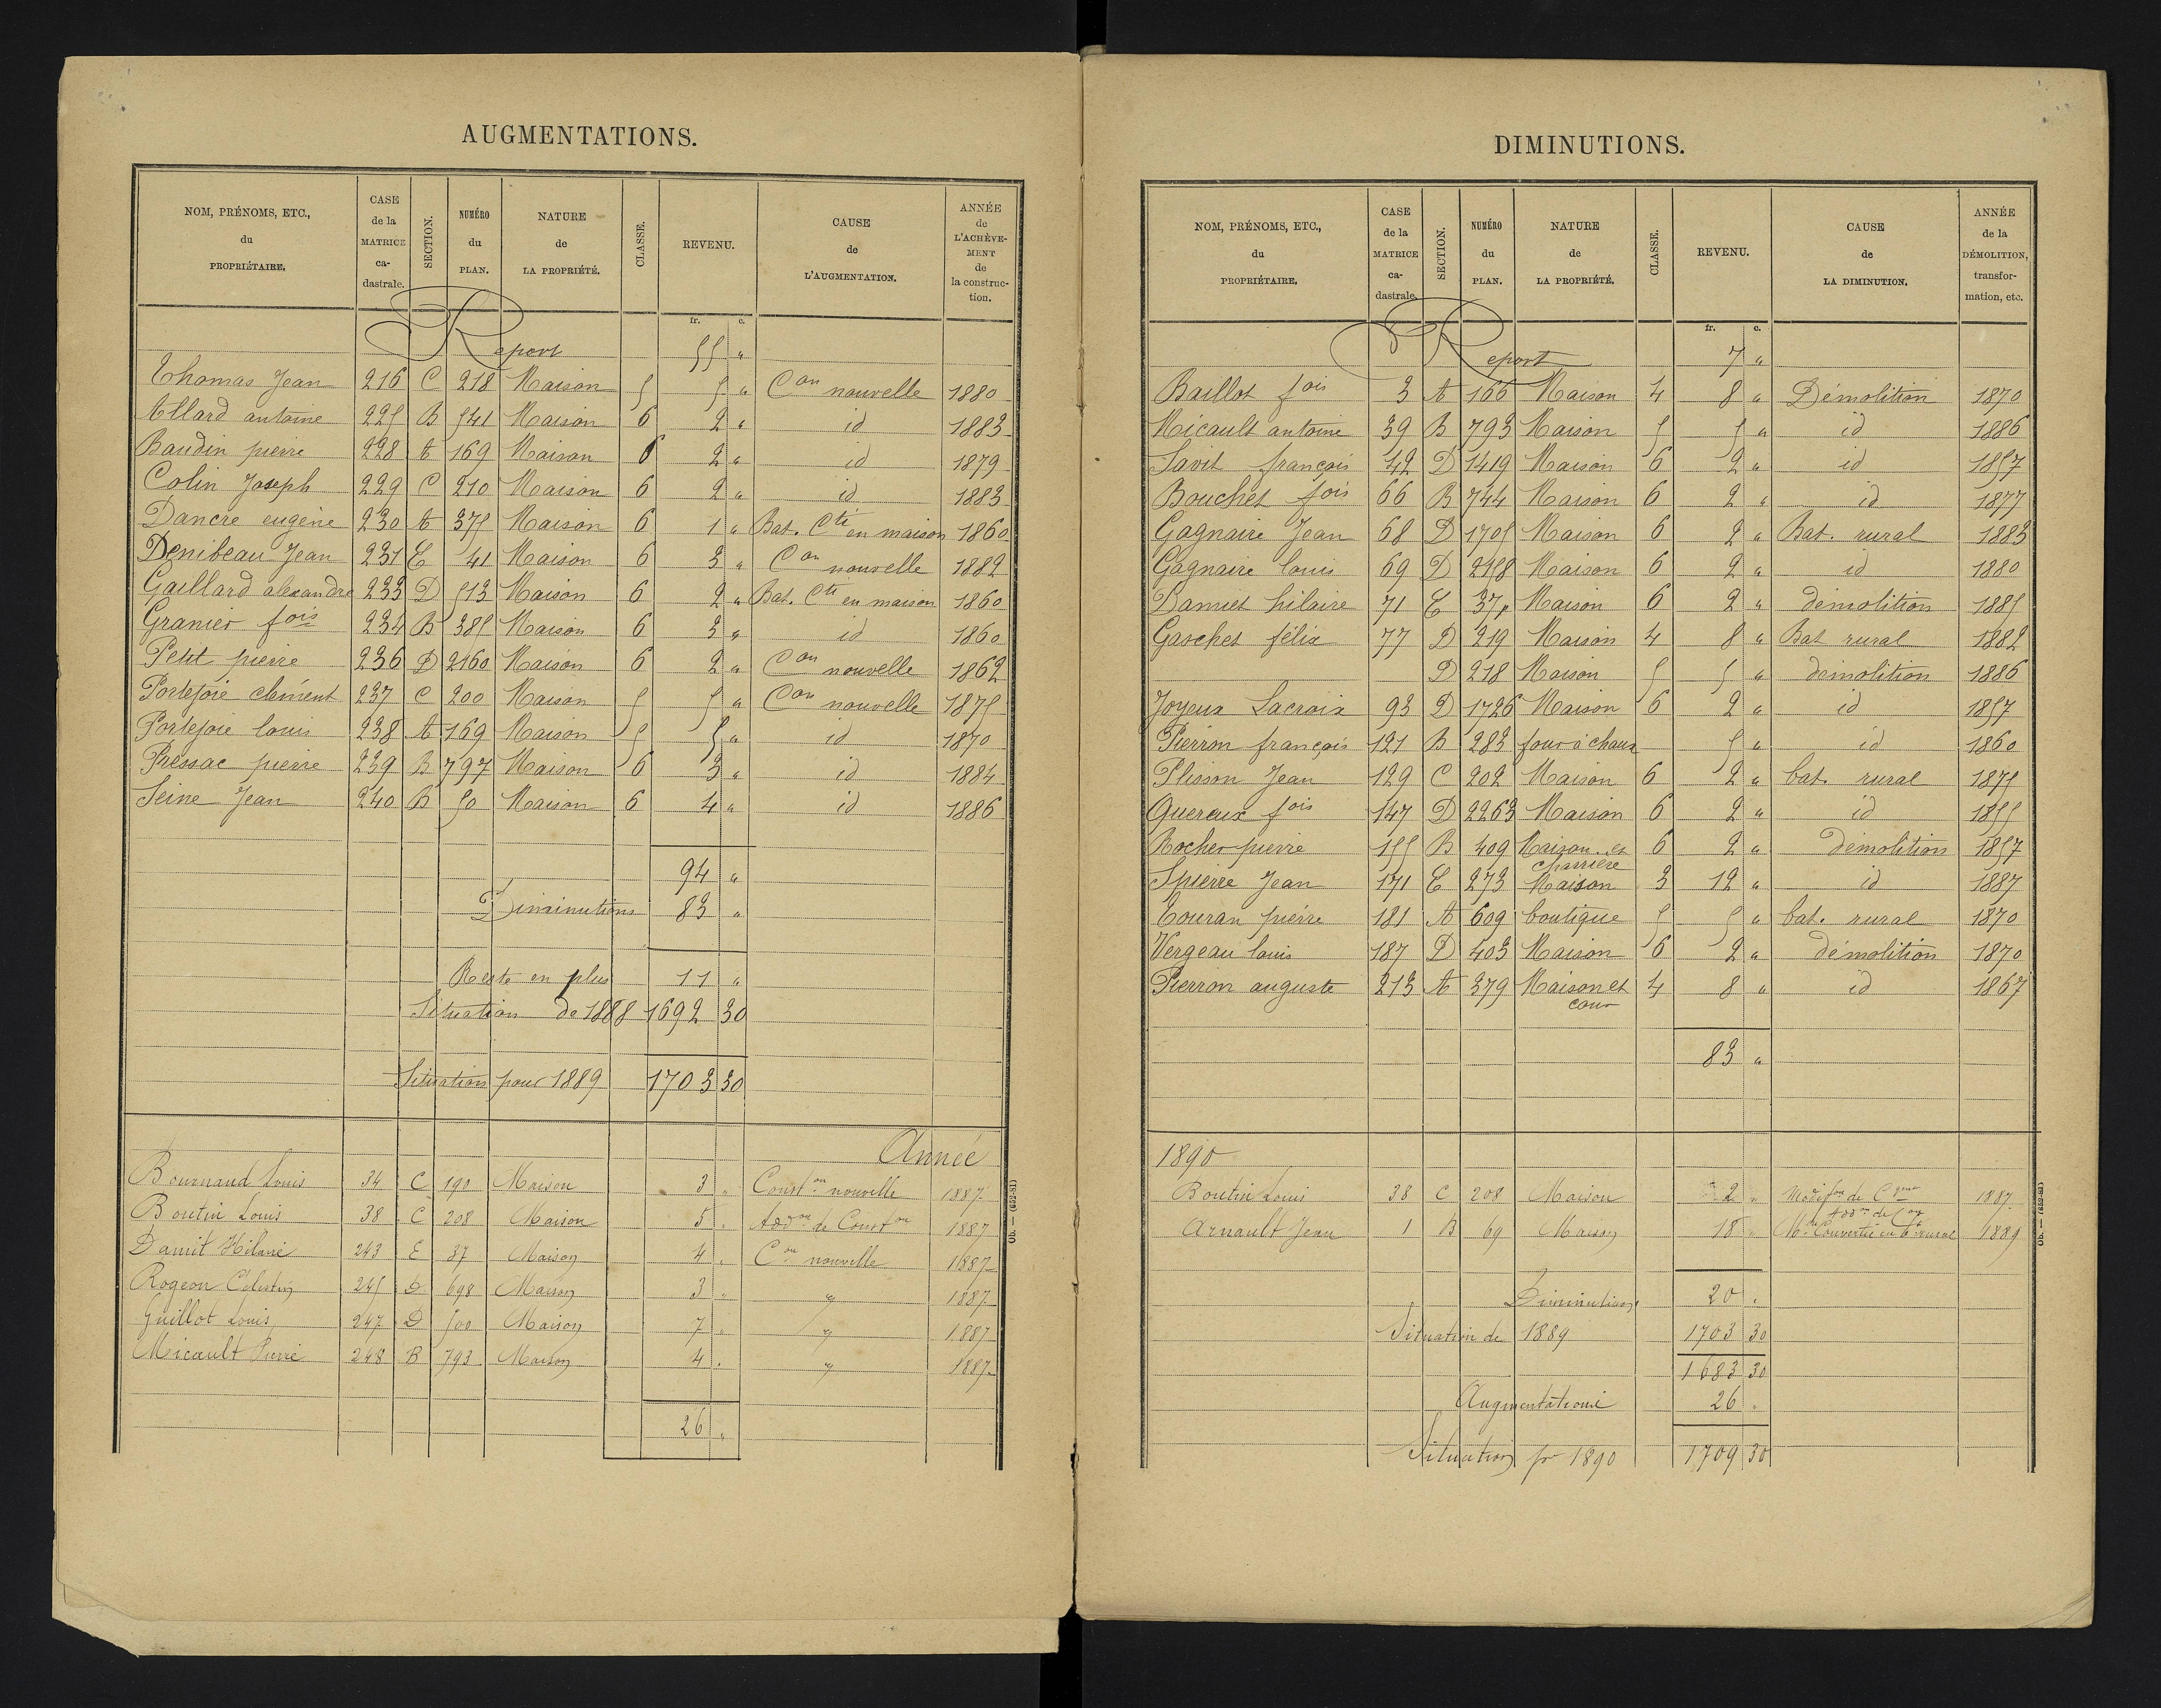 AUGMENTATIONS.
NOM, PRÉNOMS, ETC., du PROPRIÉTAIRE. CASE de la MATRICE ca-dastrale. SECTION. NUMÉRO du PLAN. NATURE de LA PROPRIÉTÉ. CLASSE. REVENU. CAUSE de L'AUGMENTATION. ANNÉE de L'ACHÈVE-MENT de la construc-tion.
fr. c.
Report 55 "
Thomas Jean 216 C 218 Maison 5 5 " Con nouvelle 1880
Allard antoine 225 B 541 Maison 6 2 " id 1883
Baudin pierre 228 A 169 Maison 6 2 " id 1879
Colin Joseph 229 C 210 Maison 6 2 " id 1883
Dancre eugène 230 A 375 Maison 6 1 " Bat. Cti en maison 1860
Denibeau Jean 231 E 41 Maison 6 3 " Con nouvelle 1882
Gaillard alexandre 233 D 513 Maison 6 2 " Bat. Cti en maison 1860
Granier fois 234 B 385 Maison 6 3 " id 1860
Petit pierre 236 D 2160 Maison 6 2 " Con nouvelle 1862
Portejoie clément 237 C 200 Maison 5 5 " Con nouvelle 1875
Portejoie louis 238 A 169 Maison 5 5 " id 1870
Pressac pierre 239 B 797 Maison 6 3 " id 1884
Seine Jean 240 B 50 Maison 6 4 " id 1886
94 "
Diminutions 83 "
Reste en plus 11 "
Situation de 1888 1692 30
Situation pour 1889 1703 30
Année
Bournaud Louis 34 C 190 Maison 3 " Const.on nouvelle 1887
Boutin Louis 38 C 208 Maison 5 " Addon de Conston 1887
Damit Hilaire 243 E 37 Maison 4 " Con nouvelle 1887
Rogeon Célestin 245 D 698 Maison 3 " " 1887
Guillot Louis 247 D 500 Maison 7 " " 1887
Micault Pierre 248 B 793 Maison 4 " " 1887
26 "
Ob. — (652-81)
DIMINUTIONS.
NOM, PRÉNOMS, ETC., du PROPRIÉTAIRE. CASE de la MATRICE ca-dastrale. SECTION. NUMÉRO du PLAN. NATURE de LA PROPRIÉTÉ. CLASSE. REVENU. CAUSE de LA DIMINUTION. ANNÉE de la DÉMOLITION, transfor-mation, etc.
fr. c.
Report 7 "
Baillot fois 3 A 166 Maison 4 8 " Démolition 1870
Micault antoine 39 B 793 Maison 5 5 " id 1886
Savit françois 42 D 1419 Maison 6 2 " id 1857
Bouchet fois 66 B 744 Maison 6 2 " id 1877
Gagnaire Jean 68 D 1705 Maison 6 2 " Bat. rural 1883
Gagnaire louis 69 D 2158 Maison 6 2 " id 1880
Damiet hilaire 71 E 37p Maison 6 2 " démolition 1885
Gaschet félix 77 D 219 Maison 4 8 " Bat rural 1882
D 218 Maison 5 5 " démolition 1886
Joyeux Lacroix 93 D 1726 Maison 6 2 " id 1857
Pierron françois 121 B 283 four à chaux 5 " id 1860
Plisson Jean 129 C 202 Maison 6 2 " bat. rural 1875
Quereux fois 147 D 2263 Maison 6 2 " id 1855
Rocher pierre 155 B 409 Maison et charrière 6 2 " démolition 1857
Spierre Jean 171 E 273 Maison 3 12 " id 1887
Touran pierre 181 A 609 boutique 5 5 " bat. rural 1870
Vergeau louis 187 D 403 Maison 6 2 " démolition 1870
Pierron auguste 213 A 379 Maison et cour 4 8 " id 1867
83 "
1890
Boutin Louis 38 C 208 Maison 2 " Modifon de 1887
Arnault Jean 1 B 69 Maison 18 " Mon Convertie en bt rural 1889
Diminutions 20 .
Situation de 1889 1703 30
1683 30
Augmentations 26 .
Situation pr 1890 1709 30
Ob. — (652-81)